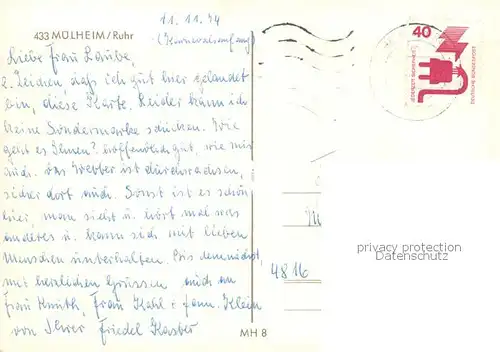 11.11.74
433 MÜLHEIM/Ruhr
(Karnevalsanfang)
Liebe Frau Laube,
z. Zeichen, daß ich gut hier gelandet
bin, diese Karte. Leider kann ich
keine Sondermarke schicken. Wie
geht es Ihnen? hoffentlich gut, wie mir
auch. Das Wetter ist durchwachsen,
sicher dort auch. Sonst ist es schön
hier, man sieht u. hört mal was
anderes u. kann sich mit lieben
Menschen unterhalten. Bis demnächst,
mit herzlichen Grüssen auch an
Frau Knuth, Frau Kahl + fam. Klein
von Ihrer Friedel
MH 8
40
JEDERZEIT SICHERHEIT
DEUTSCHE BUNDESPOST
privacy protection
Datenschutz
4816